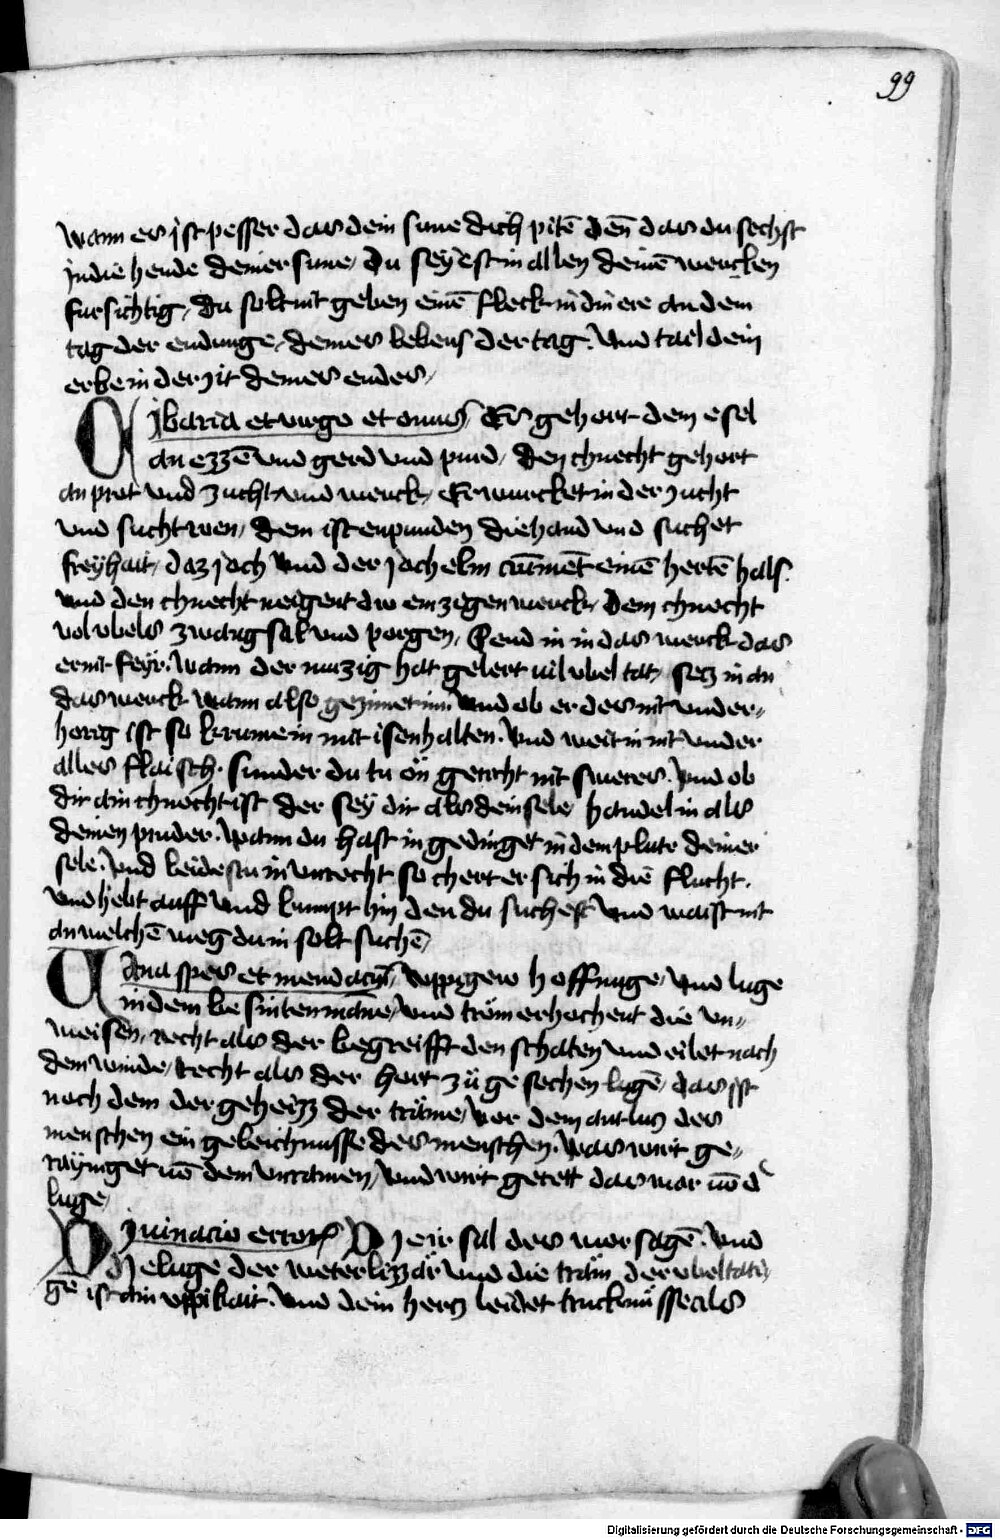 99
wann es ist pesser das dein sune dich pitē dēn das du sechst
in die hende deiner sune / Du seyest in allen deinē wercken
fursichtig / du solt nit geben einē fleck in din ere an dem
tag der endunge / deines lebens der tag. Vnd tail dein
erbe in der zit deines endes /
Cibaria et virga et onus / Es gehort dem esel
an ezzē vnd gerd vnd purd / den chnecht gehort
an prot vnd zucht vnd werck / Er wurcket in der zucht
vnd sucht rwen / dem ist enpunden die hand vnd suchet
freyhait / daz joch vnd der jochelm crūmēt einē hertē hals.
vnd den chnecht neigent dw emzigen werck / Dem chnecht
vol vbels zwangsal vnd porgen / Send in in das werck das
er nit feyr. wann der muzig hat gelert vil vbel tat / secz in an
das werck wann also gezimet im. Vnd ob er des nit vnder-
horig ist so krume in mit isenhalten. Vnd weit in nit vnder
alles flaisch. sunder du tu ön gericht nit sweres. Vnd ob
dir ain chnecht ist der sey dir als dein sele handel in als
deinen pruder. Wann du hast in gedinget in dem plute deiner
sele. Vnd leidestu in vnrecht so chert er sich in die flucht.
vnd hebt auff vnd kumpt hin den du suchest vnd waist nit
an welchē weg du in solt suchē /
Vana spes et mendaciū / vppigew hoffnuge / vnd luge
in dem be sintenmāne / vnd tröm erhochent die vn-
weisen / recht als der begreifft den schaten vnd eilet nach
dem winde / recht als der hort zü gesechen lugē / das ist
noch dem der geheizz der träme / vor dem antlus des
menschen ein geleichnusse des menschen. Was wirt ge-
rayniget vō dem vnrainen / vnd wirt gerett das war vō d
luge /
Diuinacio erroris Die ir sal des warsagē. vnd
die luge der weterlizzär vnd die träm der vbeltäti-
gē ist ain vppikait. Vnd dein hercz leidet trucknusse als
Digitalisierung gefördert durch die Deutsche Forschungsgemeinschaft - DFG